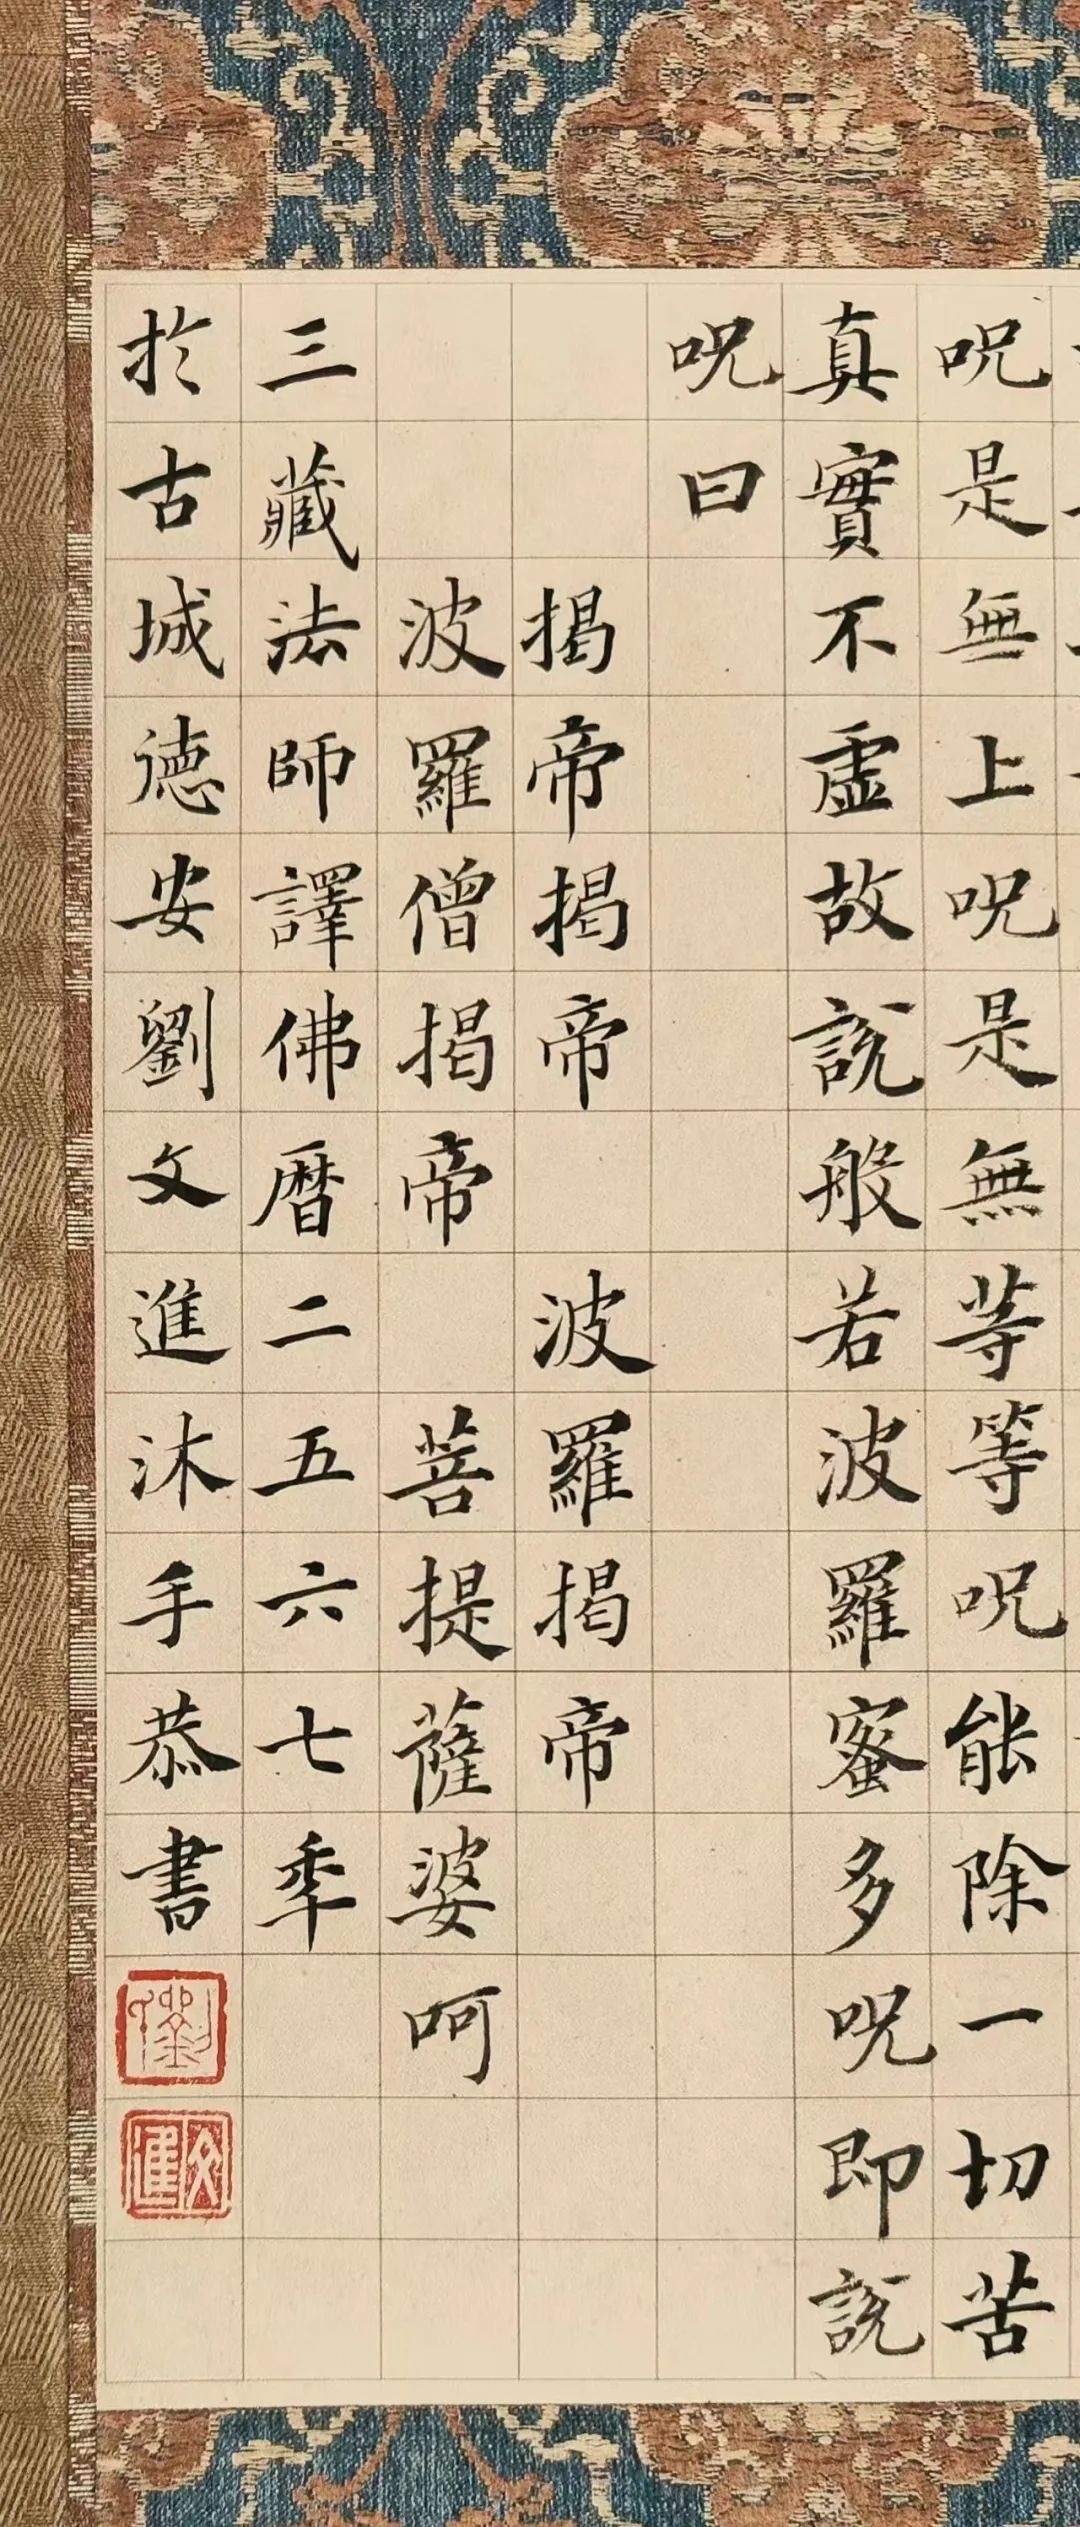 呪是無上呪是無等等呪能除一切苦
真實不虛故說般若波羅蜜多呪即說
呪曰
揭帝揭帝 波羅揭帝
波羅僧揭帝 菩提薩婆呵
三藏法師譯佛暦二五六七年
於古城德安劉文進沐手恭書
劉
文進